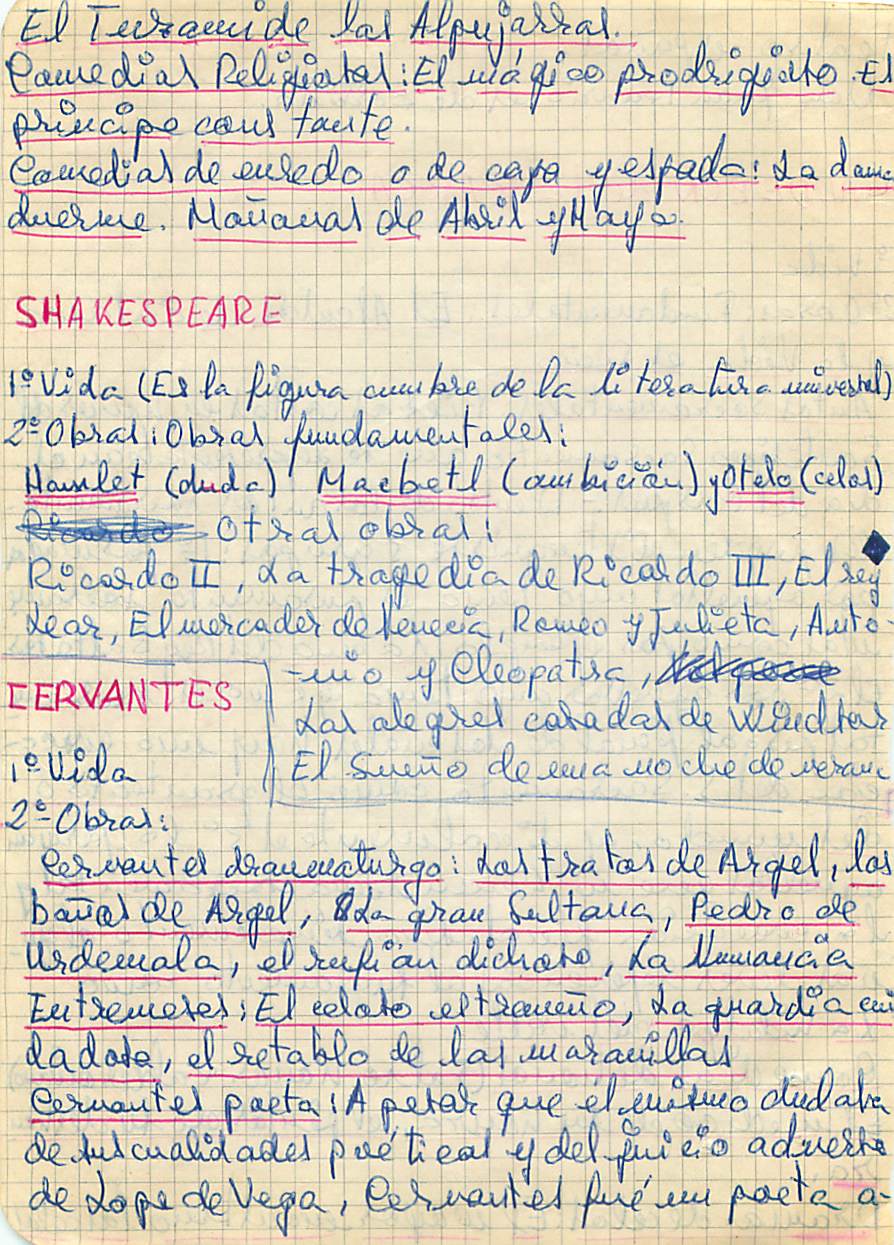 El Tuzaní de las Alpujarras.
Comedias Religiosas: El mágico prodrigioso. El
príncipe constante.
Comedias de enredo o de capa y espada: La dama
duerme. Mañanas de Abril y Mayo.
SHAKESPEARE
1º Vida (Es la figura cumbre de la literatura universal)
2º Obras: Obras fundamentales:
Hamlet (duda) Macbetl (ambición) y Otelo (celos)
Ricardo Otras obras:
Ricardo II, La tragedia de Ricardo III, El rey
Lear, El mercader de Venecia, Romeo y Julieta, Anto-
-nio y Cleopatra,
Las alegres casadas de Windsor
El Sueño de una noche de veran
CERVANTES
1º Vida
2º Obras:
Cervantes dramaturgo: Los tratos de Argel, los
baños de Argel, La gran Sultana, Pedro de
Urdemala, el rufián dichoso, La Numancia
Entremeses: El celoso estremeño, La guardia cui
dadosa, el retablo de las maravillas
Cervantes poeta: A pesar que él mismo dudaba
de sus cualidades poéticas y del juicio adverso
de Lope de Vega, Cervantes fué un poeta a-